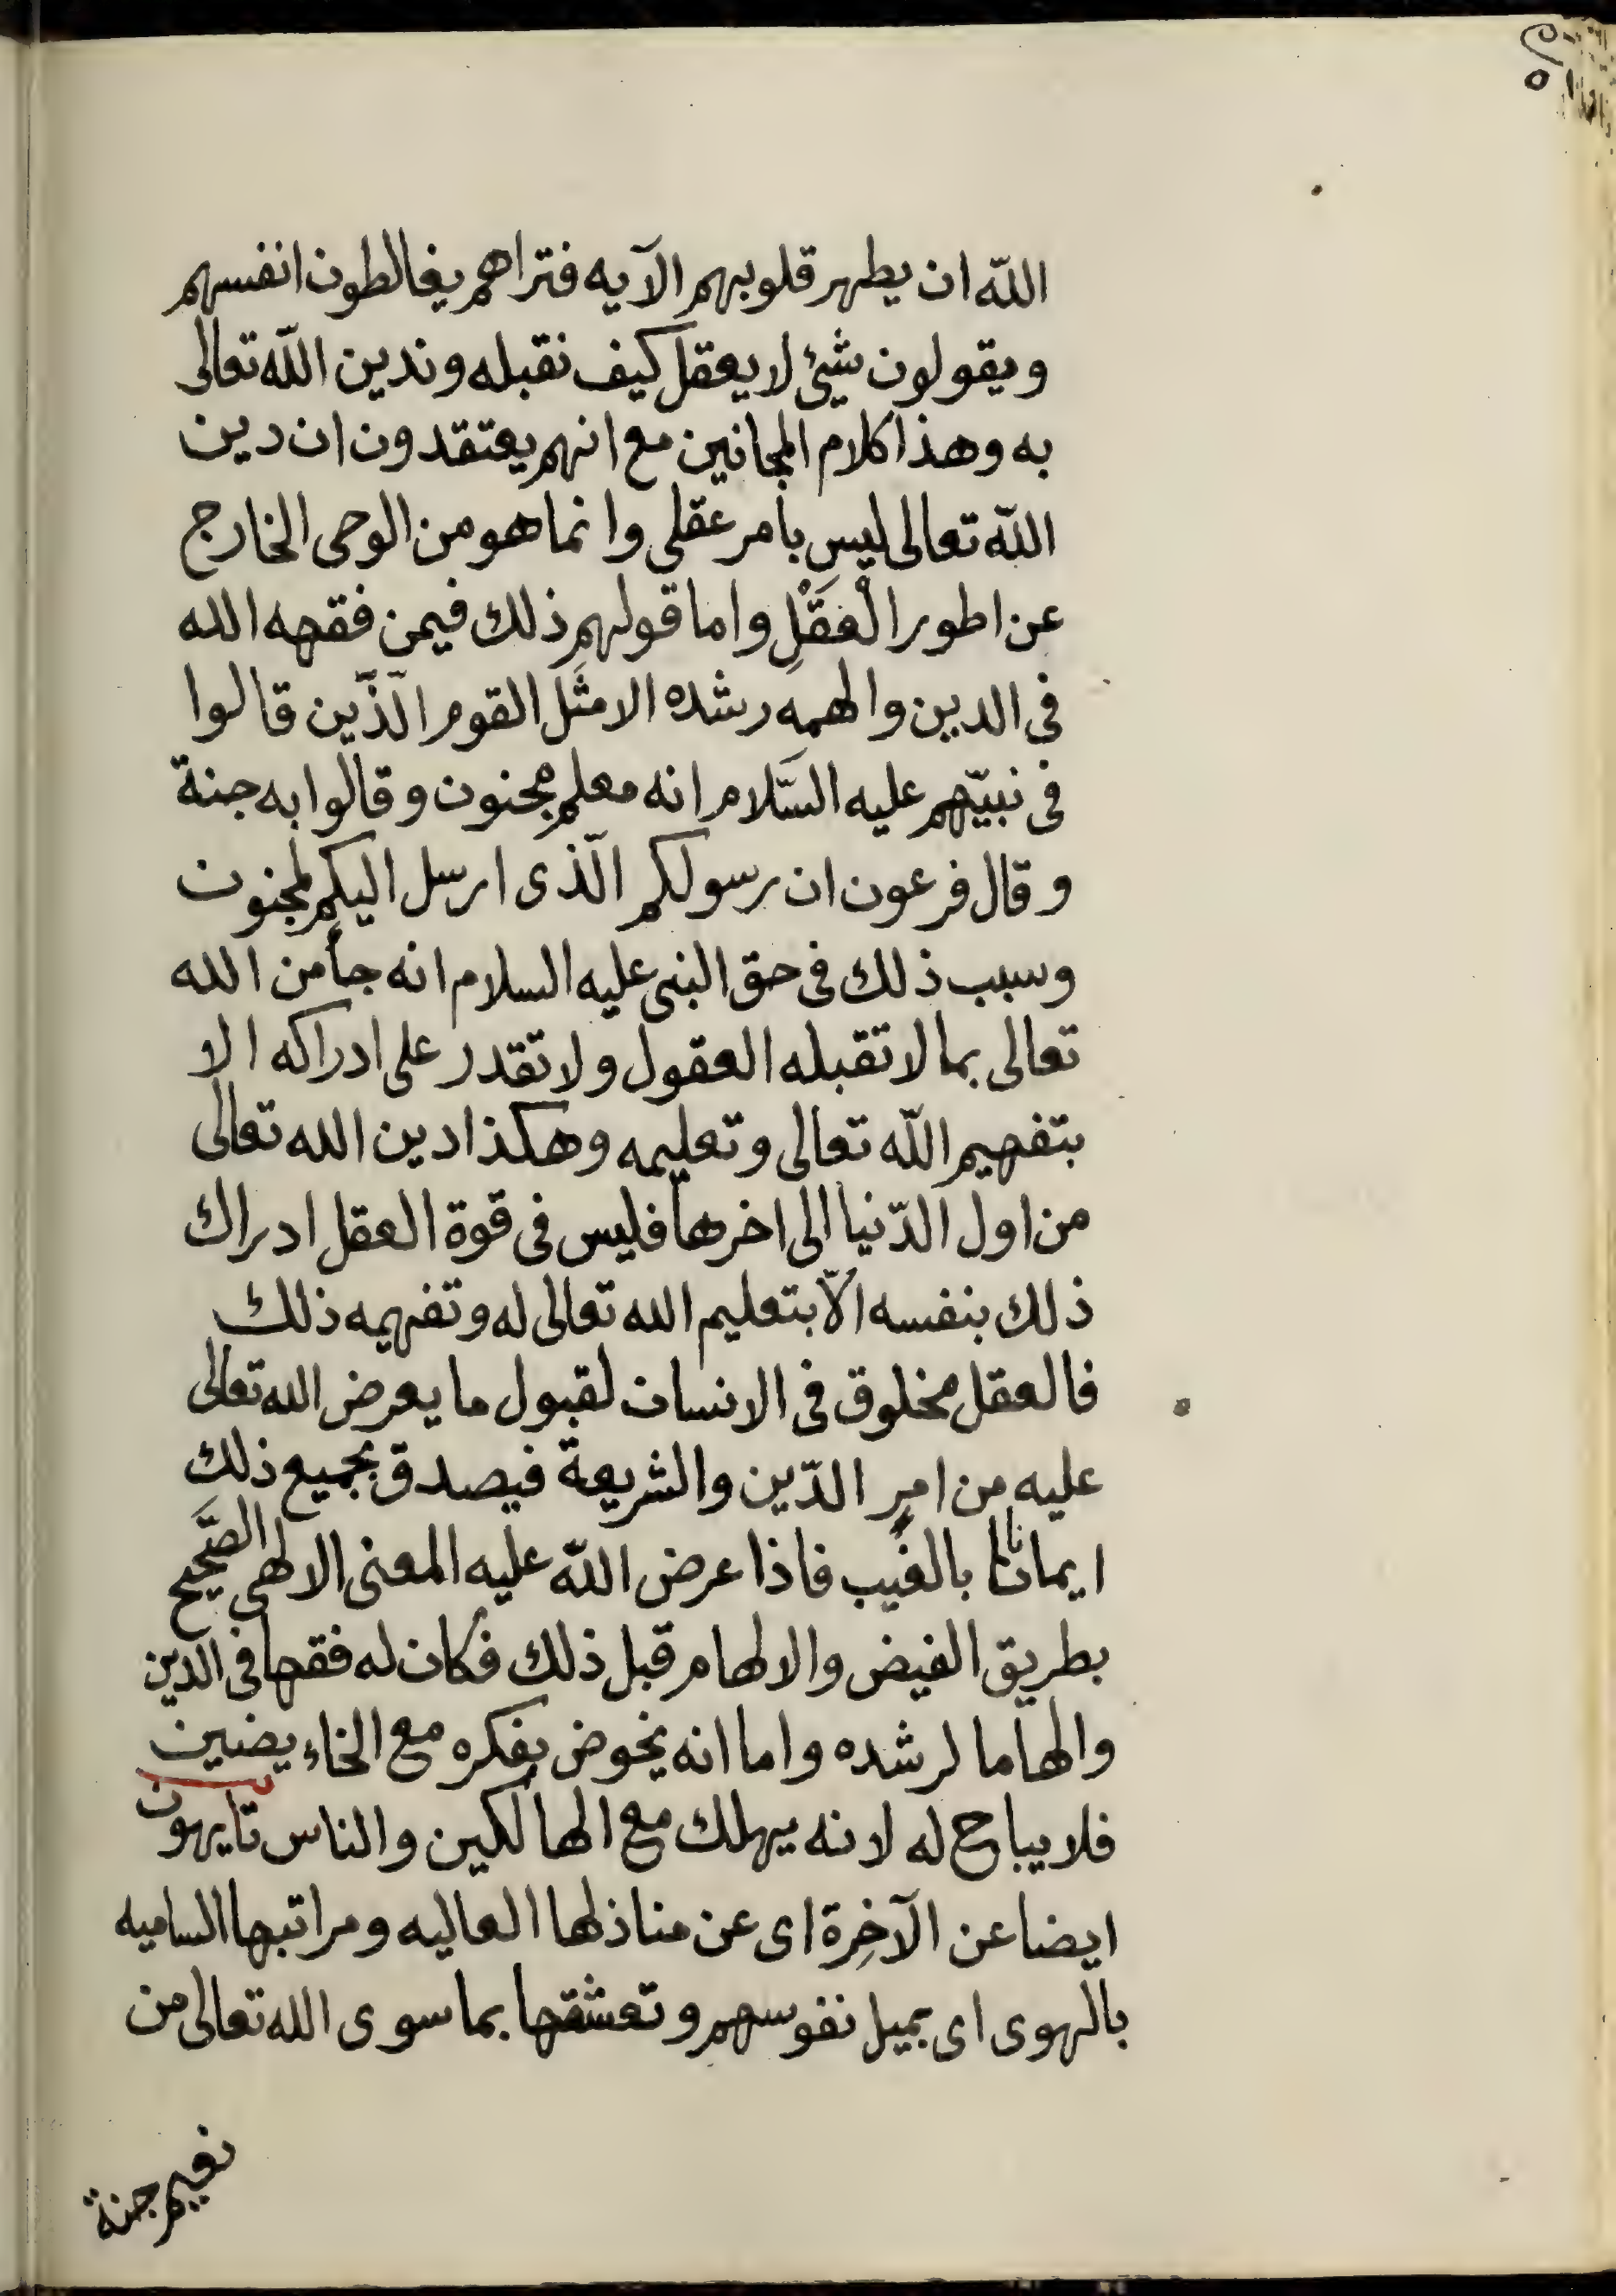 الله ان يطهر قلوبهم الآيه فتراهم يغالطون انفسهم
ويقولون شئ لا يعقل كيف نقبله وندين الله تعالى
به وهذا كلام المجانين مع انهم يعتقدون ان دين
الله تعالى ليس بامر عقلى وانما هو من الوحى الخارج
عن اطور العَقْلِ واما قولهم ذلك فيمن فقهه الله
فى الدين والهمه رشده الا مثل القوم الّذين قالوا
فى نبيّهم عليه السّلام انه معلم مجنون وقالوا به جنة
وقال فرعون ان رسولكم الّذى ارسل اليكم لمجنون
وسبب ذلك فى حق النبى عليه السلام انه جأ من الله
تعالى بما لا تقبله العقول ولا تقدر على ادراكه الا
بتفهيم الله تعالى وتعليمه وهكذا دين الله تعالى
من اول الدّنيا الى اخرها فليس فى قوة العقل ادراك
ذلك بنفسه الّا بتعليم الله تعالى له وتفهيمه ذلك
فالعقل مخلوق فى الانسان لقبول ما يعرض الله تعالى
عليه من امر الدّين والشريعة فيصدق بجميع ذلك
ايمانا بالغيب فاذا عرض الله عليه المعنى الالهى الصَّحيح
بطريق الفيض والالهام قبل ذلك فكان له فقها فى الدين
والهاما لرشده واما انه يخوض بفكره مع الخاءيضين
فلا يباح له لانه يهلك مع الهالكين والناس تايهون
ايضا عن الآخِرة اى عن منازلها العاليه ومراتبها الساميه
بالهوى اى بميل نفوسهم وتعشقها بما سوى الله تعالى من
نعيم جنة